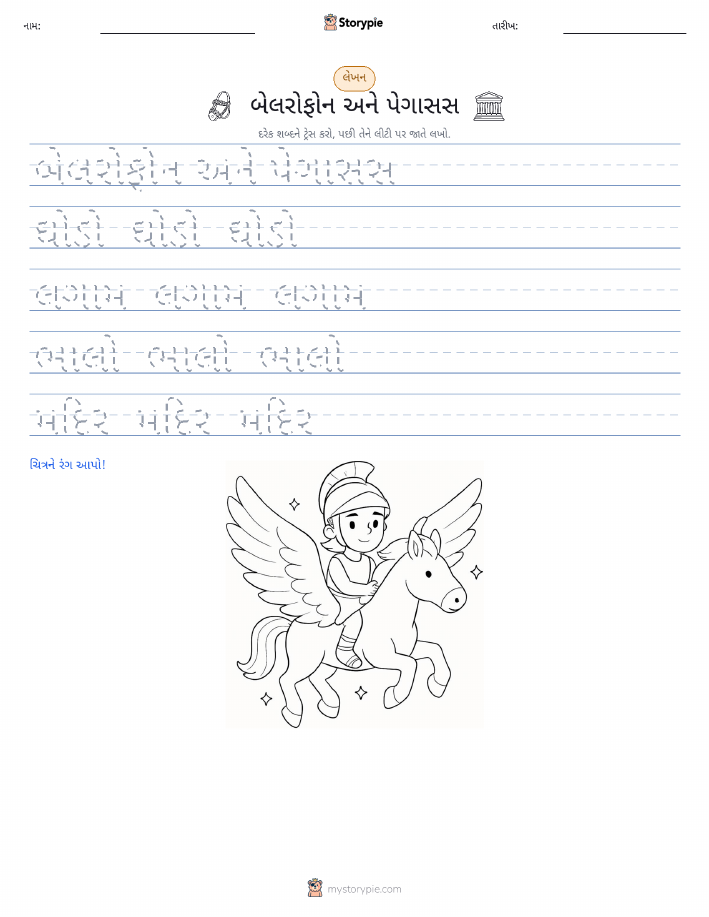 નામ:
Storypie
તારીખ:
લેખન
બેલરોફોન અને પેગાસસ
દરેક શબ્દને ટ્રેસ કરો, પછી તેને લીટી પર જાતે લખો.
બેલરોફોન અને પેગાસસ
ઘોડો ઘોડો ઘોડો
લગામ લગામ લગામ
ભાલો ભાલો ભાલો
મંદિર મંદિર મંદિર
ચિત્રને રંગ આપો!
mystorypie.com